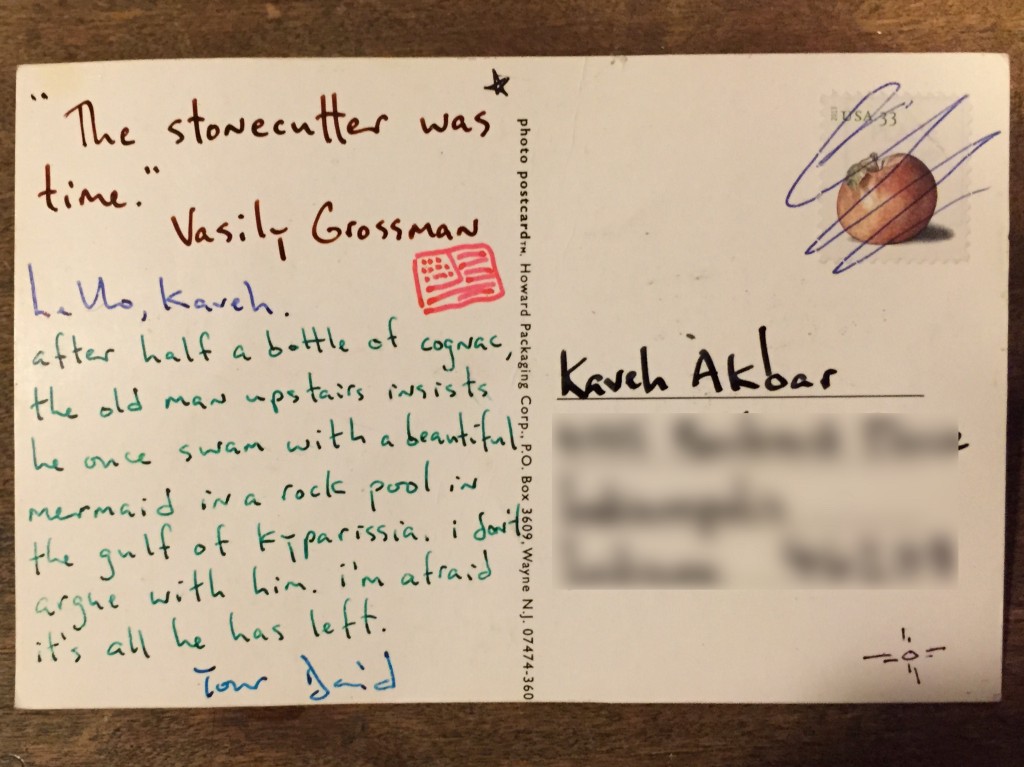 "The stonecutter was
time."
Vasily Grossman
hello, Kaveh.
after half a bottle of cognac,
the old man upstairs insists
he once swam with a beautiful
mermaid in a rock pool in
the gulf of kyparissia. i don't
argue with him. i'm afraid
it's all he has left.
Your David
photo postcard™. Howard Packaging Corp., P.O. Box 3609, Wayne N.J. 07474-360
USA 33
Kaveh Akbar